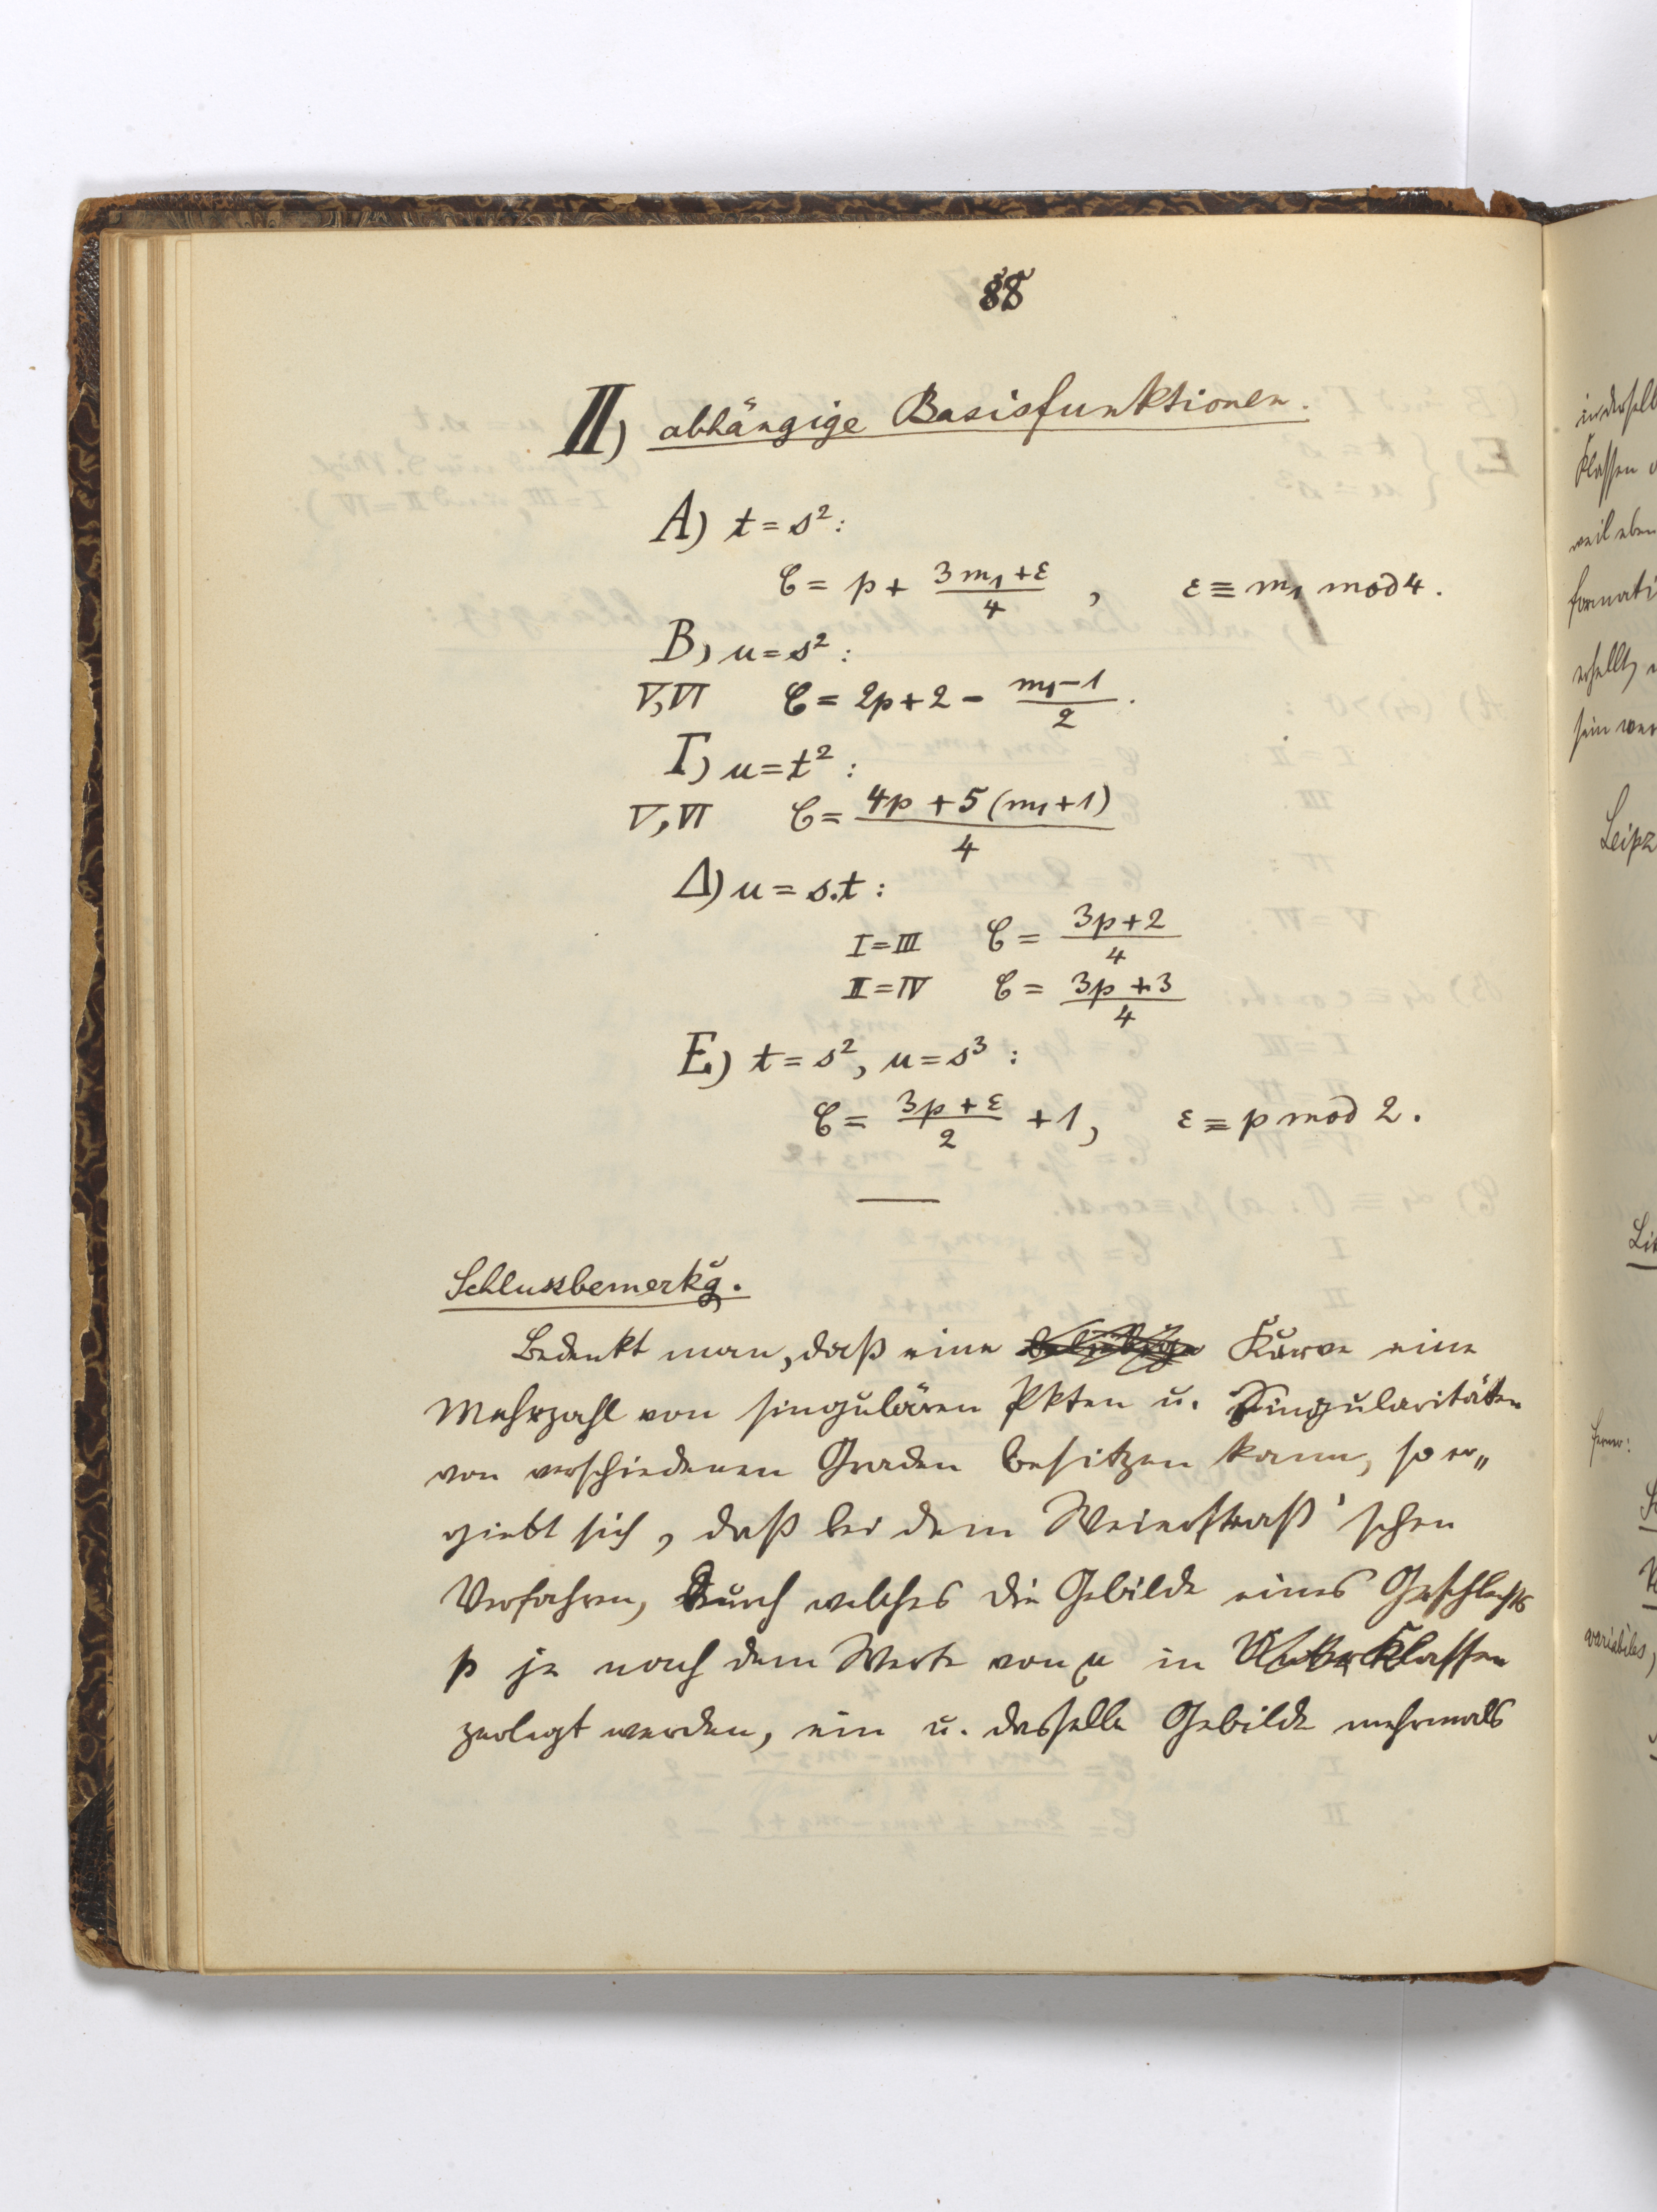 88
II) abhängige Basisfunktionen.
A) t = s²:
C = p + (3m₁+ε)/4 , ε ≡ m₁ mod 4.
B) u = s² :
V, VI C = 2p + 2 − (m₁−1)/2 .
Γ) u = t² :
V, VI C = (4p + 5(m₁+1))/4
Δ) u = s.t :
I = III C = (3p+2)/4
II = IV C = (3p+3)/4
E) t = s², u = s³ :
C = (3p+ε)/2 + 1, ε ≡ p mod 2.
Schlussbemerkg.
Bedenkt man, daß eine Kurve eine
Mehrzahl von singulären Pkten u. Singularitäten
von verschiedenen Graden besitzen kann, so er„
giebt sich, daß bei dem Weierstraß'schen
Verfahren, durch welches die Gebilde eines Geschlechts
p je nach dem Werte von μ in Klassen
zerlegt werden, ein u. dasselbe Gebilde mehrmals
in derselb
Klassen
weil eben
formati
erhellt,
sein wer
Leipz
ferner:
variabiles,